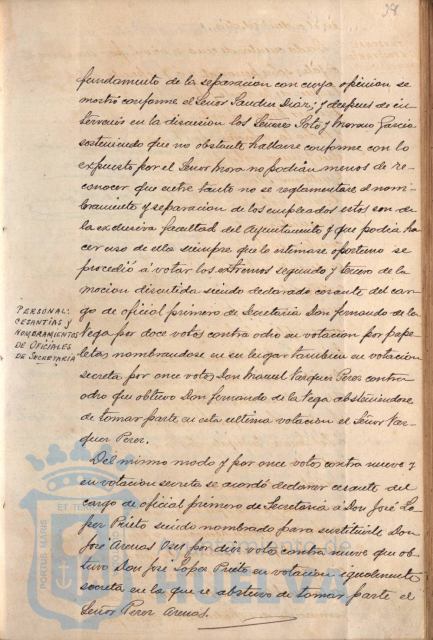 38
fundamento de la separacion con cuya opinion se
mostró conforme el Señor Sanchez Diaz; y despues de in
tervenir en la discusion los Señores Soto y Moreno Garcia
sosteniendo que no obstante hallarse conforme con lo
expuesto por el Señor Mora no podian menos de re-
conocer que entre tanto no se reglamentase el nom-
bramiento y separacion de los empleados estos son de
la exclusiva facultad del Ayuntamiento y que podia ha
cer uso de ella siempre que lo estimase oportuno se
procedió á votar los extremos segundo y tercero de la
mocion discutida siendo declarado cesante del car-
go de oficial primero de Secretaria Don Fernando de la
Vega por doce votos contra ocho en votacion por pape
letas nombrandose en su lugar tambien en votacion
secreta por once votos Don Manuel Vazquez Perez contra
ocho que obtuvo Don Fernando de la Vega absteniendose
de tomar parte en esta ultima votacion el Señor Vaz-
quez Perez.
PERSONAL:
CESANTÍAS Y
NOMBRAMIENTOS
DE OFICIALES
DE SECRETARIA
Del mismo modo y por once votos contra nueve y
en votacion secreta se acordó declarar cesante del
cargo de oficial primero de Secretaria á Don José Lo
pez Prieto siendo nombrado para sustituirle Don
José Arenas por diez votos contra nueve que ob-
tuvo Don José Lopez Prieto en votacion igualmente
secreta en la que se abstuvo de tomar parte el
Señor Perez Arenas.
PORTUS MARIS
ET TE
Ayuntamiento de
HUELVA